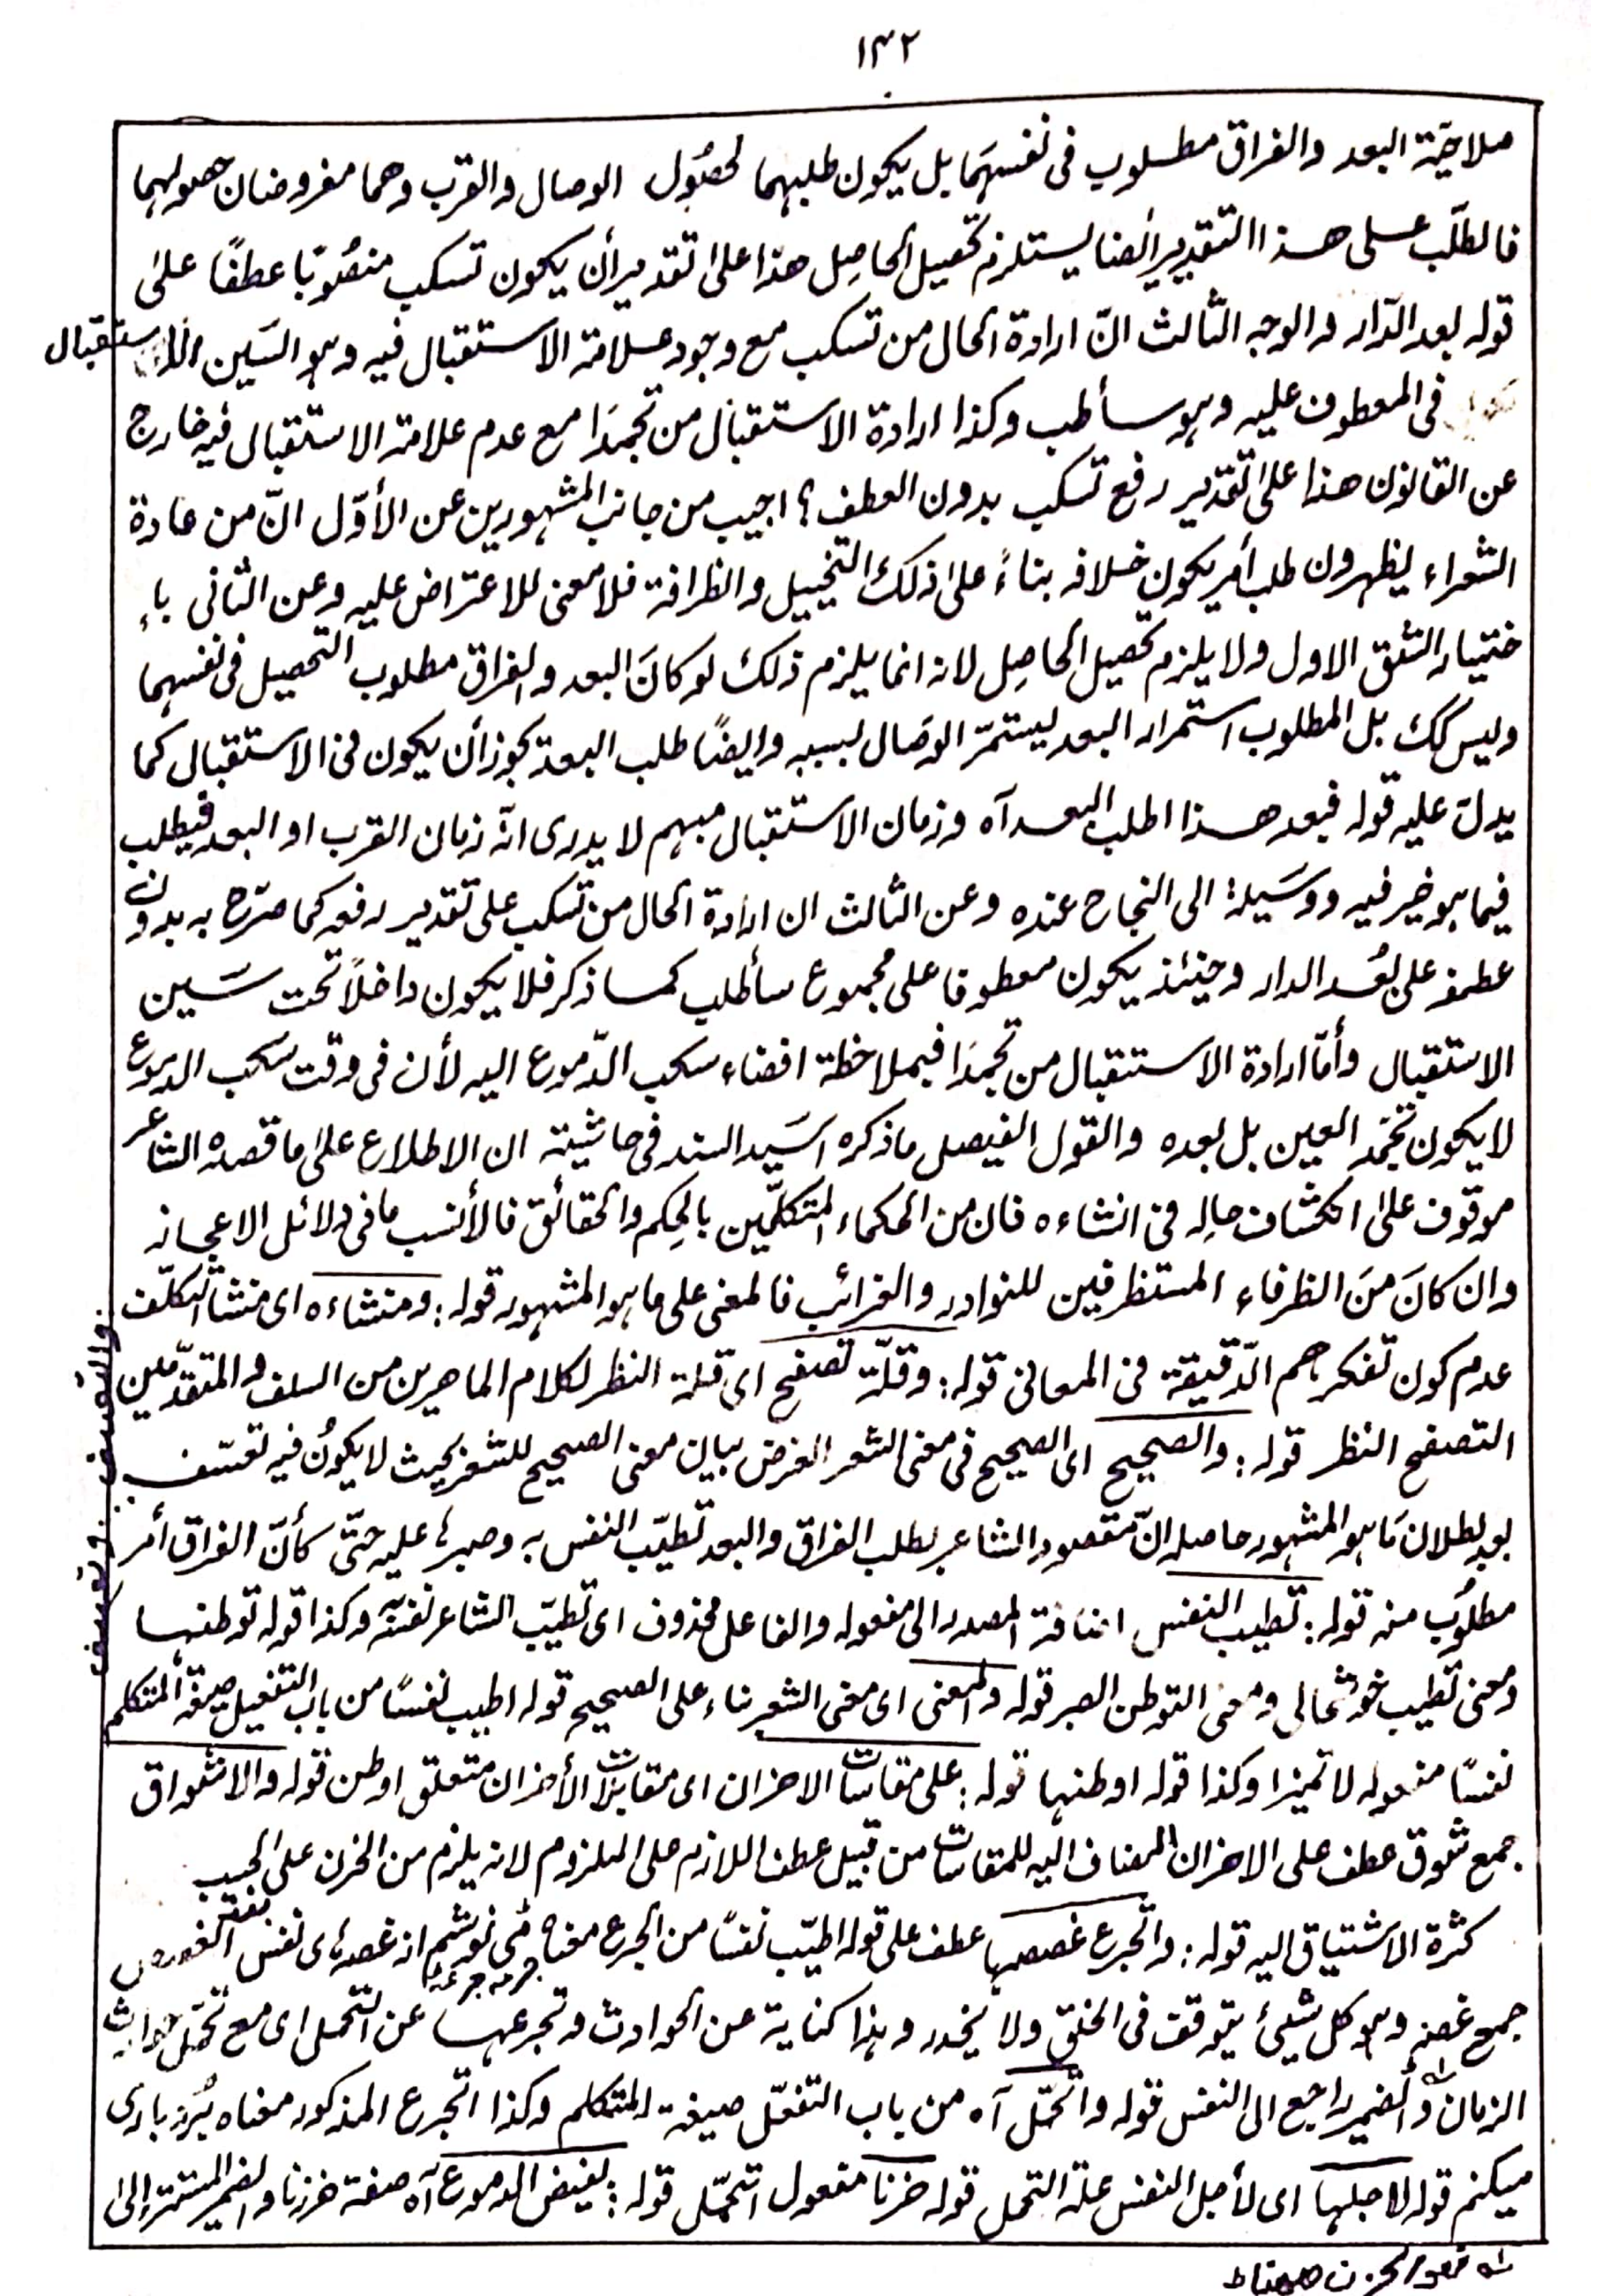 ١٣٢
ملاحية البعد والفراق مطلوب فى نفسهما بل يكون طلبهما لحصول الوصال والقرب وهما مفروضان حصولهما
فالطلب على هذا التقدير أيضا يستلزم تحصيل الحاصل هذا على تقدير أن يكون تسكب منصوبًا عطفًا على
قوله بعد الدّار والوجه الثّالث انّ ارادة الحال من تسكب مع وجود علامة الاستقبال فيه وهو السين الاستقبال
فى المعطوف عليه وهو سأطلب وكذا ارادة الاستقبال من تجمدا مع عدم علامة الاستقبال فيه خارج
عن القانون هذا على تقدير رفع تسكب بدون العطف؟ اجيب من جانب المشهورين عن الأوّل انّ من عادة
الشعراء يظهرون طلب أمر يكون خلافه بناءً على ذلك التخييل والظرافة فلا معنى للاعتراض عليه وعن الثانى باء
ختيار الشق الاول ولا يلزم تحصيل الحاصل لانه انما يلزم ذلك لو كانَ البعد والفراق مطلوب التحصيل فى نفسهما
وليس كك بل المطلوب استمرار البعد ليستمرّ الوصال بسببه وايضًا طلب البعد يجوز أن يكون فى الاستقبال كما
يدل عليه قوله فبعد هذا اطلب البعد آه وزمان الاستقبال مبهم لا يدرى انّه زمان القرب او البعد فيطلب
فيما هو خير فيه ووسيلة الى النجاح عنده وعن الثالث ان ارادة الحال من تسكب على تقدير رفعه كما صرّح به بدون
عطفه على بُعد الدار وحينئذ يكون معطوفا على مجموع سأطلب كما ذكر فلا يكون داخلاً تحت سين
الاستقبال وأمّا ارادة الاستقبال من تجمدَا فبملاحظة افضاء سكب الدّموع اليه لأن فى وقت سكب الدموع
لا يكون تجمّد العين بل بعده والقول الفيصل ما ذكره السيد السند فى حاشيته ان الاطلاع على ما قصده الشاعر
موقوف على انكشاف حاله فى انشاءه فان من الحكماء المتكلّمين بالحِكم والحقائق فالأنسب ما فى دلائل الاعجاز
وان كانَ منَ الظرفاء المستظرفين للنوادر والغرائب فالمعنى على ما هو المشهور قوله: ومنشاءه اى منشأ التكلّف
والتعسف
عدم كون تفكرهم الدّقيقة فى المعانى قوله: وقلّة تصفح اى قلة النظر لكلام الماهرين من السلف والمتقدّمين
التصفح النظر قوله: والصحيح اى الصحيح فى معنى الشعر الغرض بيان معنى الصحيح للشعر بحيث لا يكونُ فيه تعسّف
بعد بطلان مَا هو المشهور حاصله انّ مقصود الشاعر بطلب الفراق والبعد تطيّب النفس به وصبرها عليه حتّى كأنّ الفراق أمر
مطلوب منه قوله: تطيب النفس اضافة المصدر الى مفعوله والفاعل محذوف اى تطيّب الشاعر نفسَه وكذا قوله توطنها
ومعنى تطيب خوشحالى ومعنى التوطن الصبر قوله والمعنى اى معنى الشعر بناء على الصحيح قوله اطيب نفسًا من باب التفعيل صيغة المتكلم
نفسًا مفعوله لا تميزا وكذا قوله اوطنها قوله: على مقاسات الاحزان اى مقابلات الأحزان متعلق اوطن قوله والاشواق
جمع شوق عطف على الاحزان المضاف اليه للمقاسات من قبيل عطف اللازم على الملزوم لانه يلزم من الحزن على الحبيب
كثرة الاشتياق اليه قوله: واتجرع غصصها عطف على قوله اطيّب نفسًا من الجرع معناه مى نوشم جرعه جرعه از غصهاى نفس الغصص
جمع غصة وهو كل شيئ يتوقف فى الحلق ولا ينحدر وهذا كناية عن الحوادث وتجرعها عن التحمل اى مع تحمّل حوادث
الزمان والضمير راجع الى النفس قوله واتحمّل آه من باب التفعّل صيغة المتكلم وكذا اتجرع المذكور معناه بُردبارى
ميكنم قوله لاجلها اى لأجل النفس علة التحمل قوله حزنا مفعول اتحمّل قوله: يفيض الدموع آه صفة حزنا والضمير المستتر الى